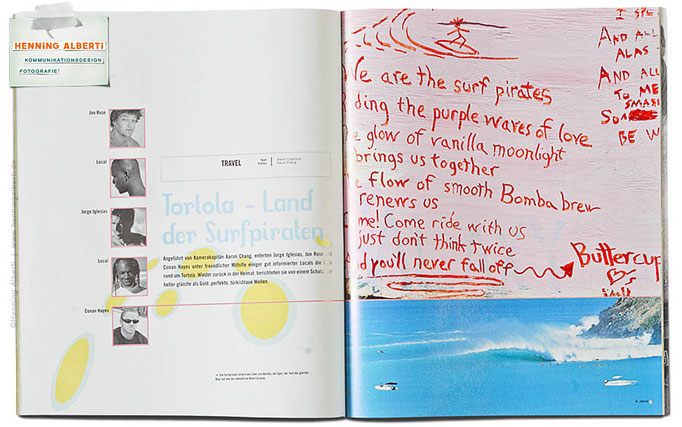 HENNiNG ALBERTi
KOMMUNIKATIONSDESIGN
FOTOGRAFIE
Jon Rose
Local
Jorge Iglesias
Local
Conan Hayes
TRAVEL
Text
Fotos
Tortola – Land
der Surfpiraten
Angeführt von Kamerakapitän Aaron Chang, enterten Jorge Iglesias, Jon Rose
Conan Hayes unter freundlicher Mithilfe einiger gut informierter Locals die
rund um Tortola. Wieder zurück in der Heimat, berichteten sie von einem Schatz,
heller glänzte als Gold: perfekte, türkisblaue Wellen.
I SPE
AND ALL
ALAS
AND ALL
TO ME
SMASH
BE W
We are the surf pirates
ding the purple waves of love
e glow of vanilla moonlight
brings us together
e flow of smooth Bomba brew
renews us
me! Come ride with us
just don't think twice
d you'll never fall off
Buttercup